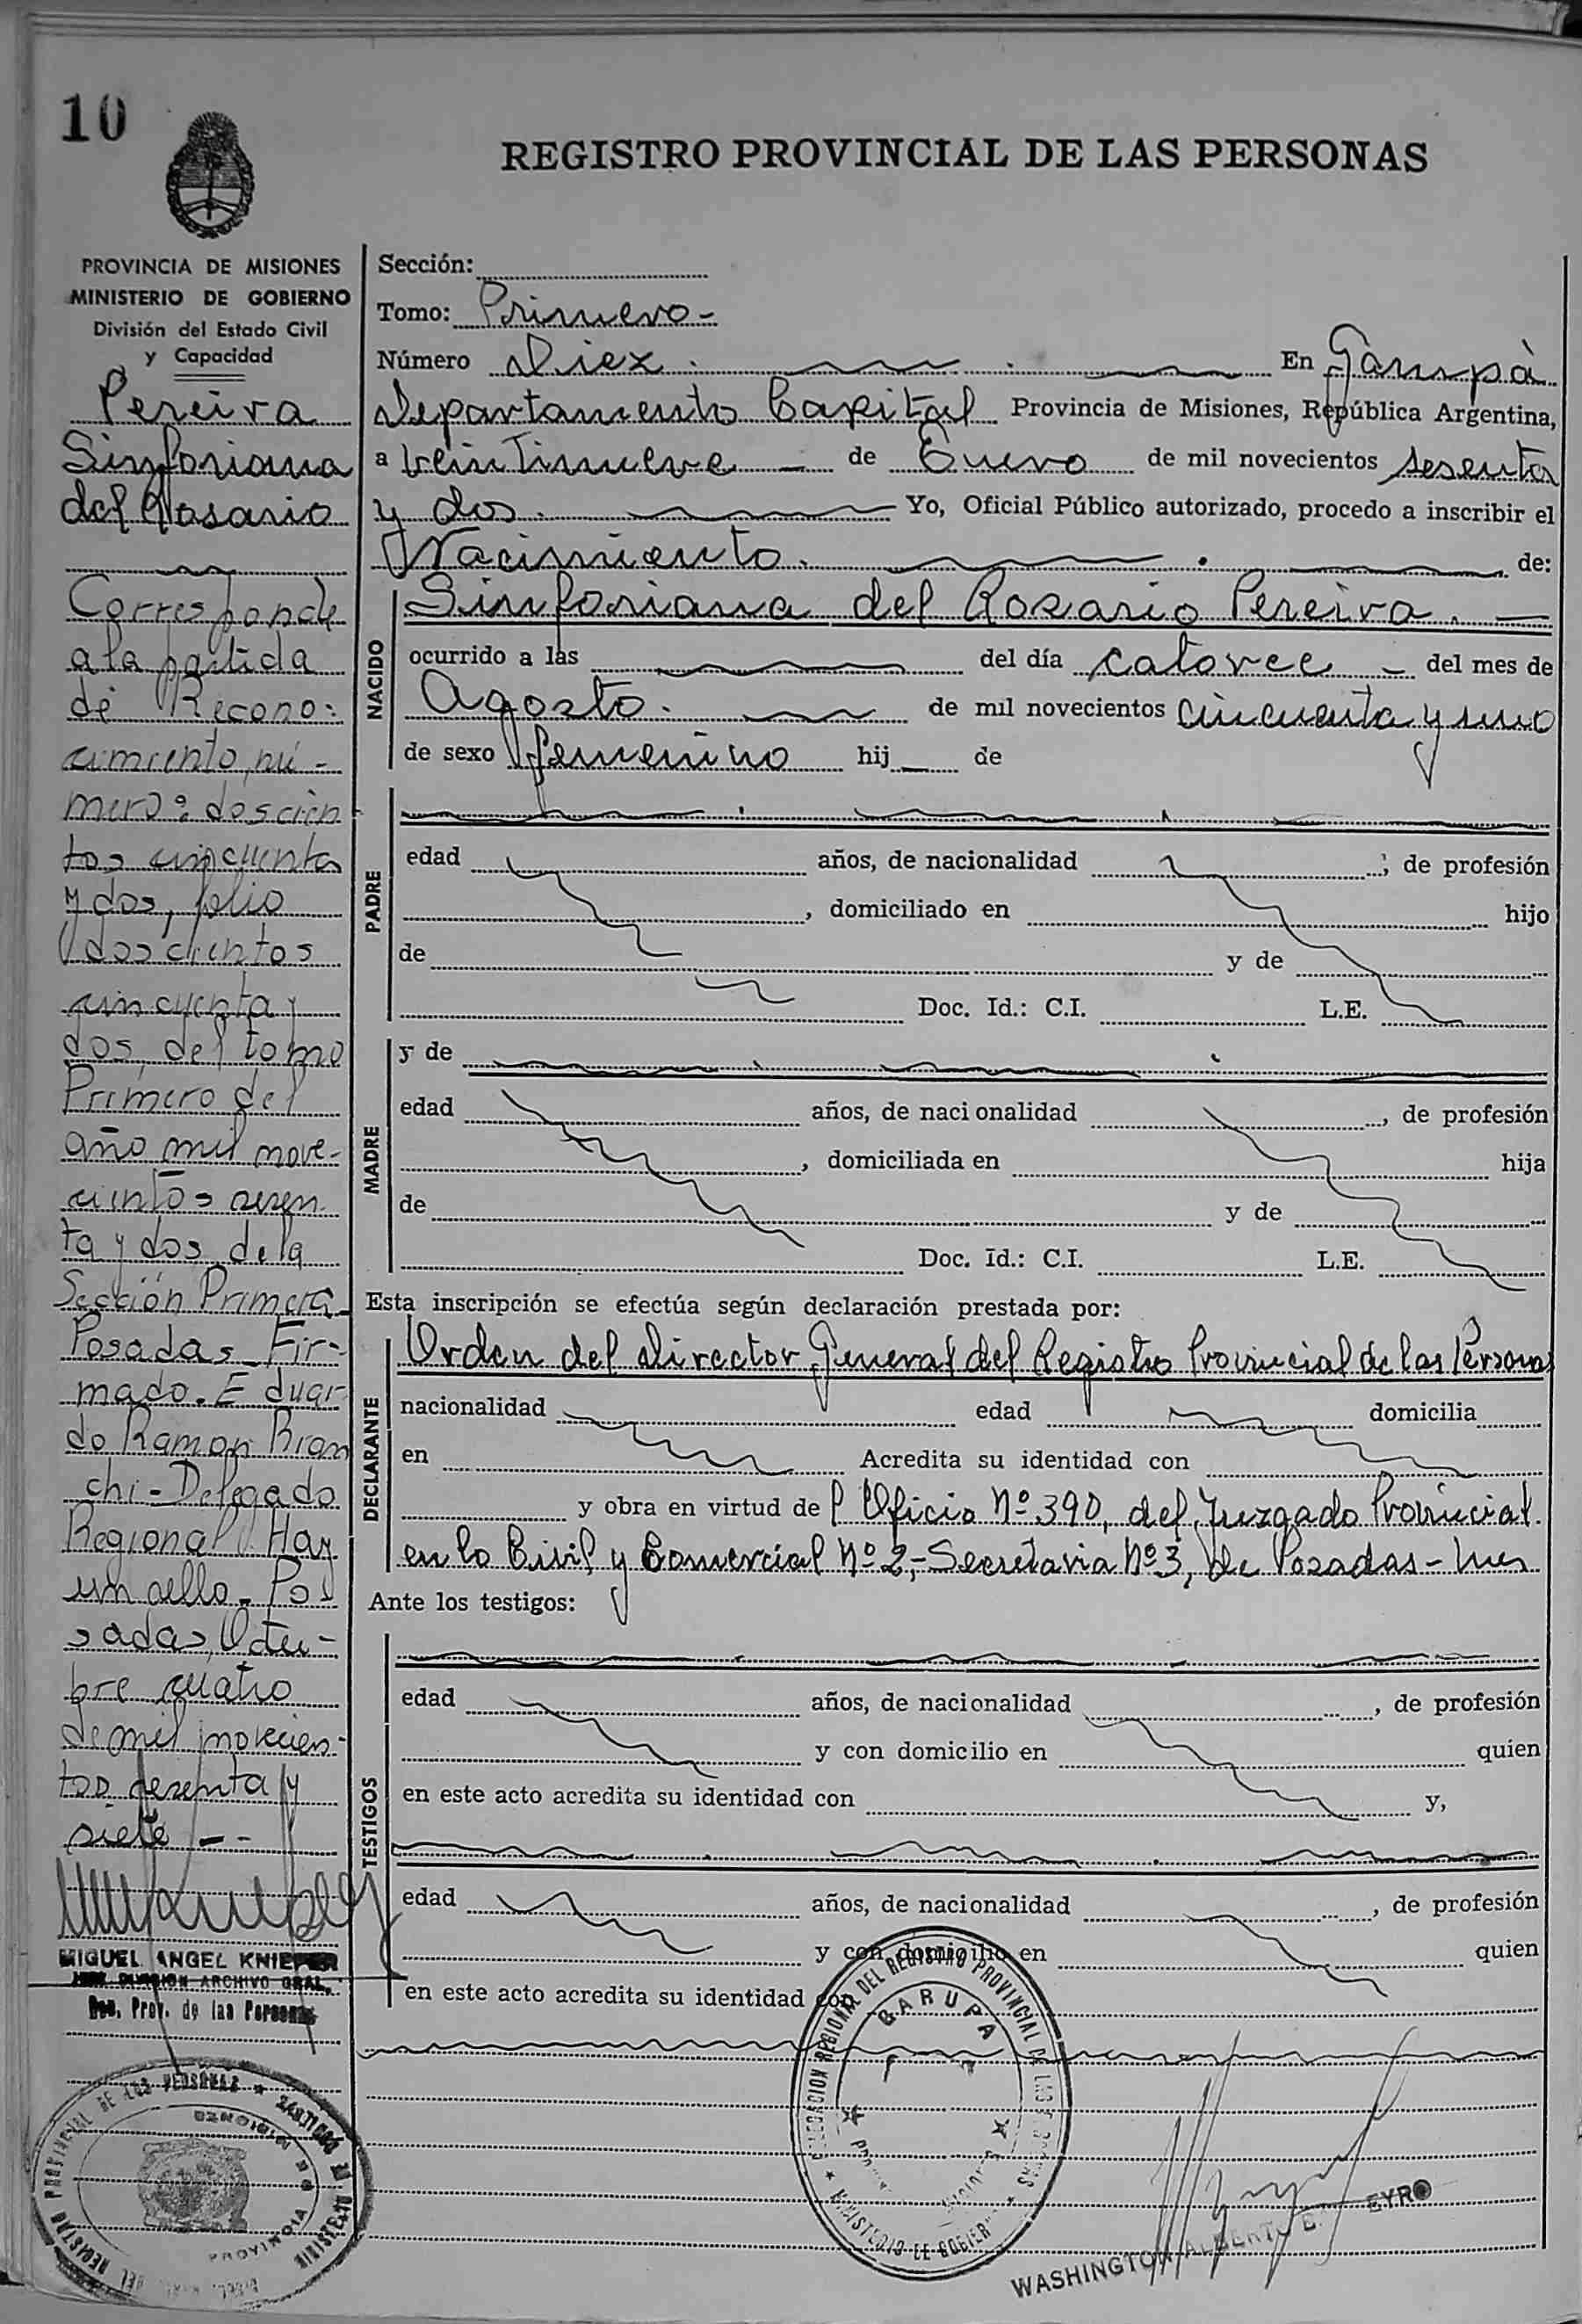 10
REGISTRO PROVINCIAL DE LAS PERSONAS
PROVINCIA DE MISIONES
MINISTERIO DE GOBIERNO
División del Estado Civil
y Capacidad
Pereira
Sinforiana
del Rosario
Corresponde
a la partida
de Recono-
cimiento, nú-
mero: doscien
tos cincuenta
y dos, folio
doscientos
cincuenta y
dos, del tomo
Primero del
año mil nove-
cientos sesen-
ta y dos de la
Sección Primera
Posadas_ Fir-
mado. Eduar-
do Ramon Bian
chi - Delegado
Regional. Hay
un sello. Po
sadas, Octu-
bre cuatro
de mil novecien-
tos sesenta y
siete - -
MIGUEL ANGEL KNIEPER
JEFE DIVISION ARCHIVO GRAL.
Reg. Prov. de las Personas
REGISTRO PROVINCIAL DE LAS PERSONAS
PROVINCIA DE MISIONES
Sección:
Tomo: Primero -
Número Diez. En Garupá
Departamento Capital Provincia de Misiones, República Argentina,
a veintinueve - de Enero de mil novecientos sesenta
y dos. Yo, Oficial Público autorizado, procedo a inscribir el
Nacimiento. de:
NACIDO
Sinforiana del Rosario Pereira. -
ocurrido a las del día catorce - del mes de
Agosto. de mil novecientos cincuenta y uno
de sexo femenino hij de
PADRE
edad años, de nacionalidad ; de profesión
, domiciliado en hijo
de y de
Doc. Id.: C.I. L.E.
MADRE
y de
edad años, de naci onalidad , de profesión
, domiciliada en hija
de y de
Doc. Id.: C.I. L.E.
Esta inscripción se efectúa según declaración prestada por:
DECLARANTE
Orden del Director General del Registro Provincial de las Personas
nacionalidad edad domicilia
en Acredita su identidad con
y obra en virtud de l Oficio Nº 390, del Juzgado Provincial
en lo Civil y Comercial Nº 2,- Secretaria Nº 3, de Posadas - Mnes
Ante los testigos:
TESTIGOS
edad años, de nacionalidad , de profesión
y con domicilio en quien
en este acto acredita su identidad con y,
edad años, de nacionalidad , de profesión
y con domicilio en quien
en este acto acredita su identidad con
DELEGACION REGIONAL DEL REGISTRO PROVINCIAL DE LAS PERSONAS
GARUPA
MINISTERIO DE GOBIERNO
WASHINGTON ALBERTO